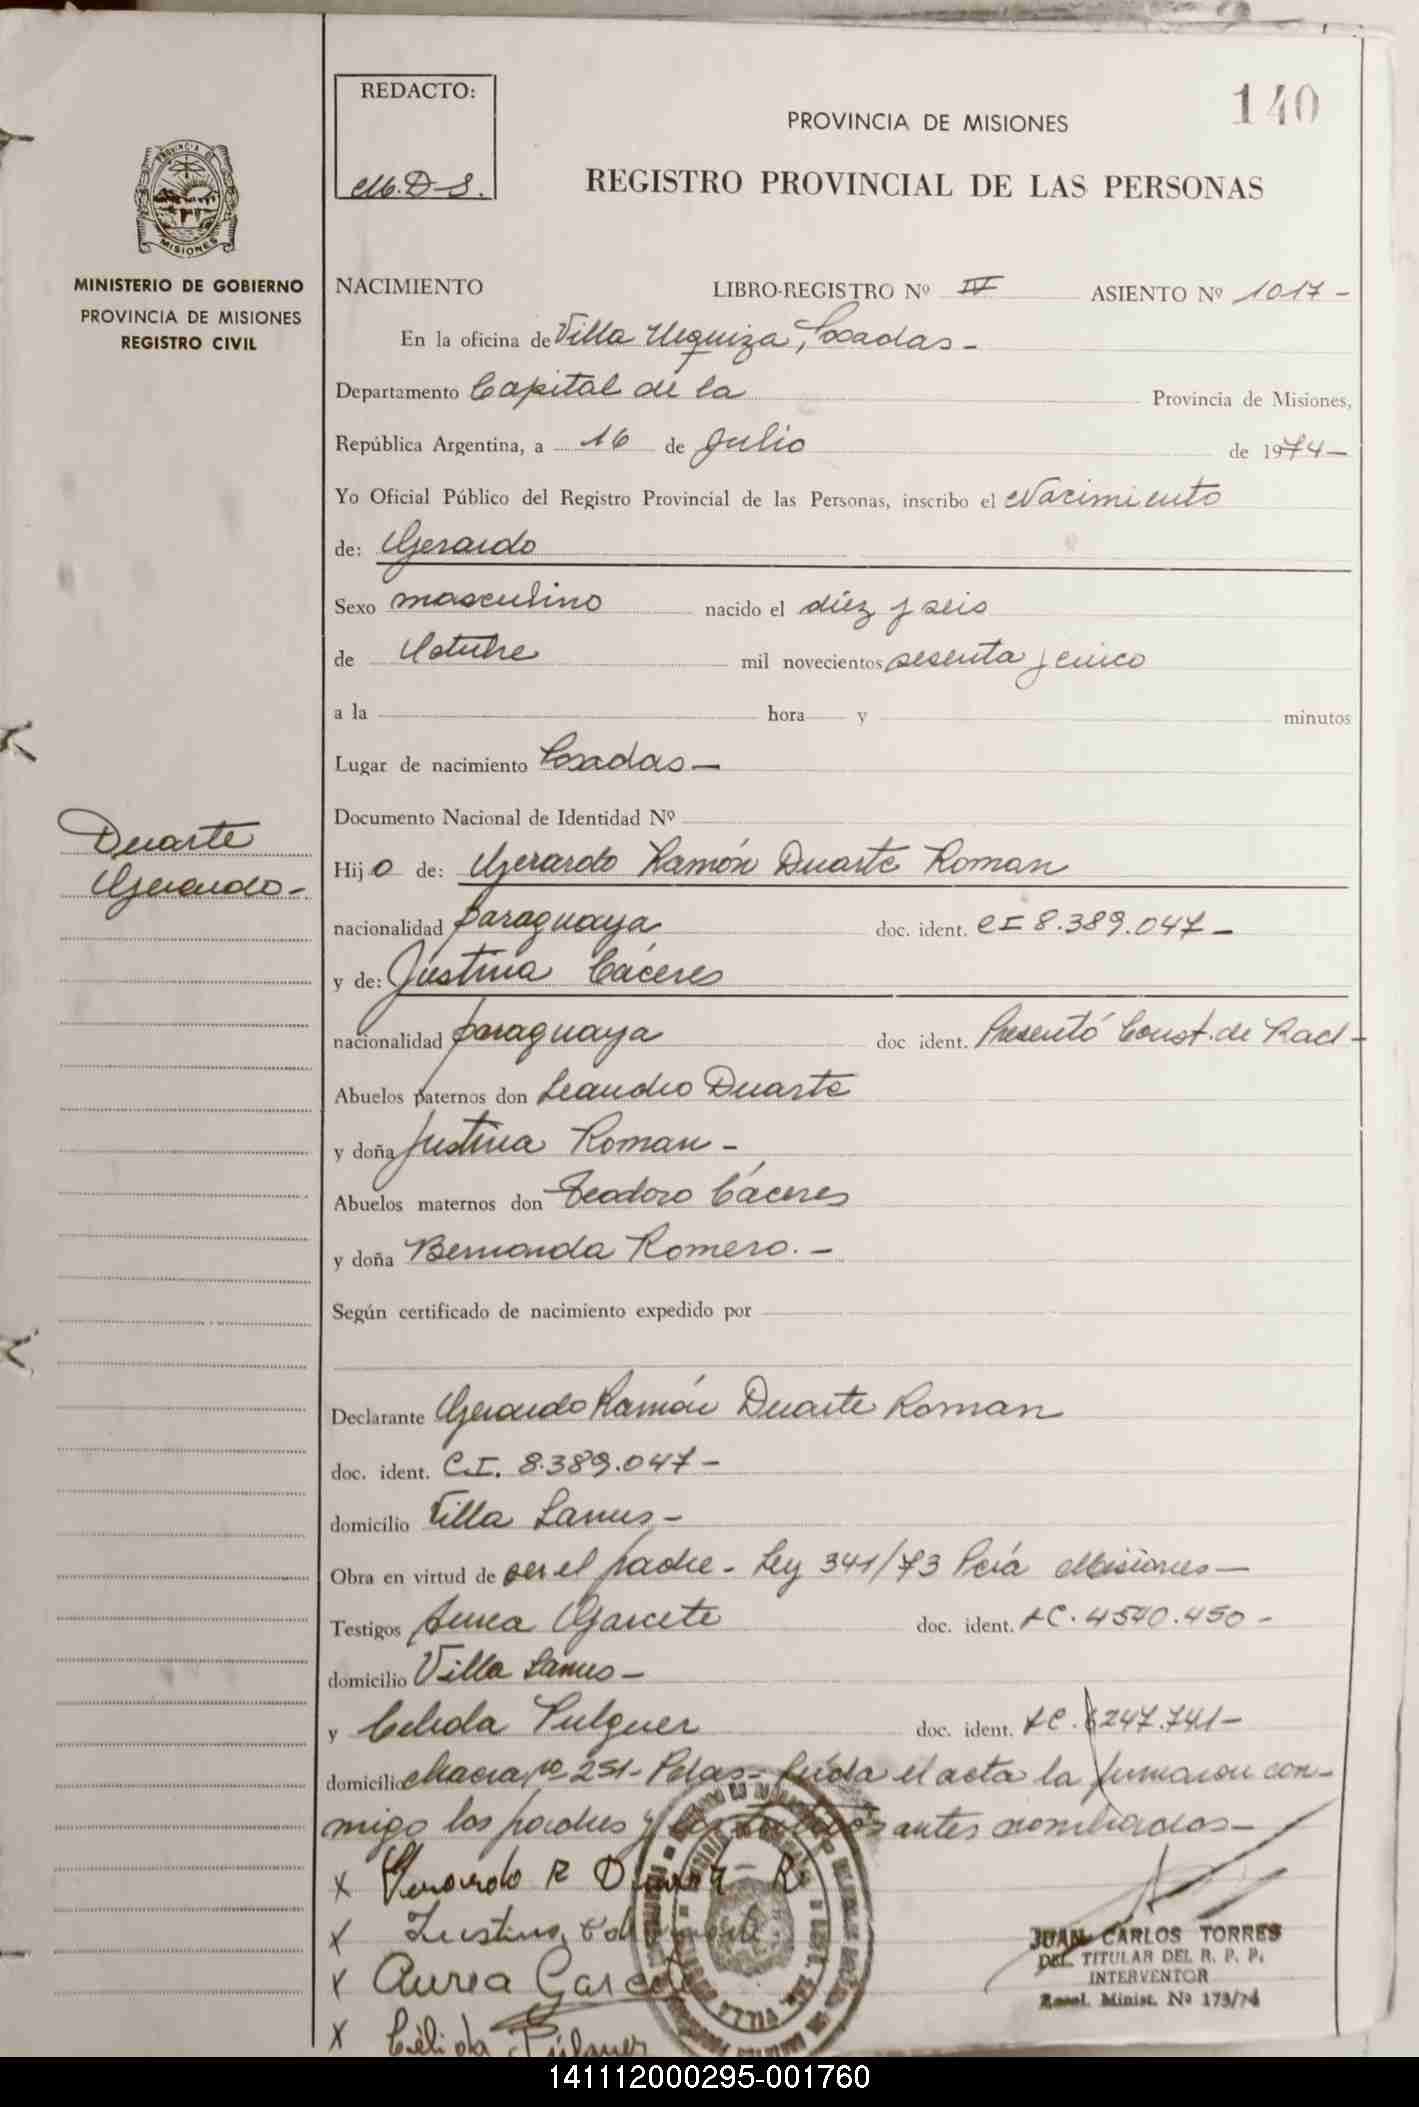 140
REDACTO:
M.D.S.
PROVINCIA DE MISIONES
REGISTRO PROVINCIAL DE LAS PERSONAS
PROVINCIA DE
MISIONES
MINISTERIO DE GOBIERNO
PROVINCIA DE MISIONES
REGISTRO CIVIL
NACIMIENTO LIBRO-REGISTRO Nº IV ASIENTO Nº 1017-
En la oficina de Villa Urquiza, Posadas-
Departamento Capital de la Provincia de Misiones,
República Argentina, a 16 de Julio de 1974-
Yo Oficial Público del Registro Provincial de las Personas, inscribo el Nacimiento
de: Gerardo
Sexo masculino nacido el diez y seis
de Octubre mil novecientos sesenta y cinco
a la hora y minutos
Lugar de nacimiento Posadas-
Documento Nacional de Identidad Nº
Duarte
Gerardo-
Hijo de: Gerardo Ramón Duarte Roman
nacionalidad paraguaya doc. ident. CI 8.389.047-
y de: Justina Cáceres
nacionalidad paraguaya doc ident. Presentó Const. de Rad-
Abuelos paternos don Leandro Duarte
y doña Justina Roman-
Abuelos maternos don Teodoro Cáceres
y doña Bernarda Romero.-
Según certificado de nacimiento expedido por
Declarante Gerardo Ramón Duarte Roman
doc. ident. C.I. 8.389.047-
domicilio Villa Lanus-
Obra en virtud de ser el padre- Ley 341/73 Pcia Misiones-
Testigos Aurea Garcete doc. ident. LC. 4540.450-
domicilio Villa Lanus-
y Celida Pulguer doc. ident. LC. 247.741-
domicilio Chacra nº 251- Pdas- Leída el acta la firmaron con-
migo los padres y los testigos antes nombrados-
X Gerardo R Duarte R
X Justina
X Aurea Garcete
X Célida
JUAN CARLOS TORRES
DEL. TITULAR DEL R. P. P.
INTERVENTOR
Resol. Minist. Nº 173/74
141112000295-001760